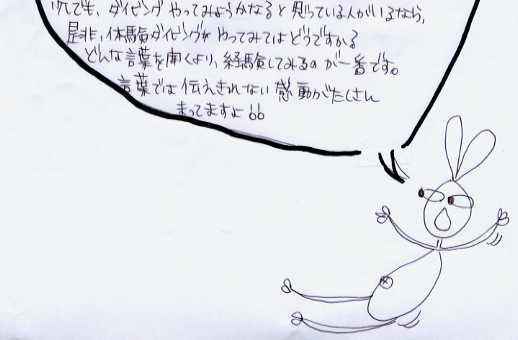 でも、ダイビングやってみようかなると思っている人がいるなら、
是非、体験ダイビングをやってみてはどうですかる
どんな言葉を聞くより、経験してみるのが一番です。
言葉では伝えきれない感動がたくさん
まってますよ!!